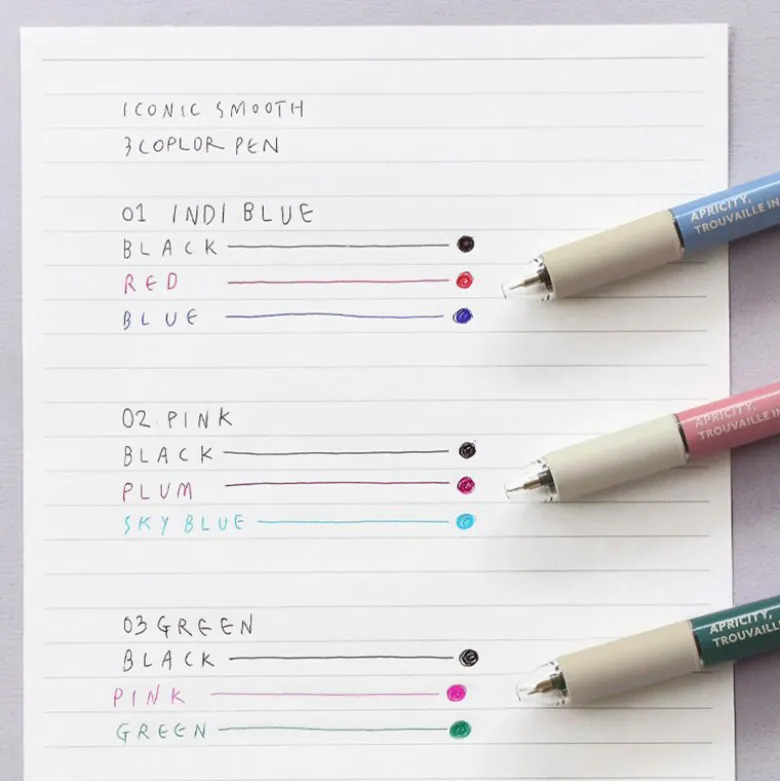 ICONIC SMOOTH
3 COPLOR PEN
01 INDI BLUE
BLACK
RED
BLUE
02. PINK
BLACK
PLUM
SKY BLUE
03 GREEN
BLACK
PINK
GREEN
APRICITY,
TROUVAILLE IN
APRICITY,
TROUVAILLE IN
APRICITY,
TROUVAILLE